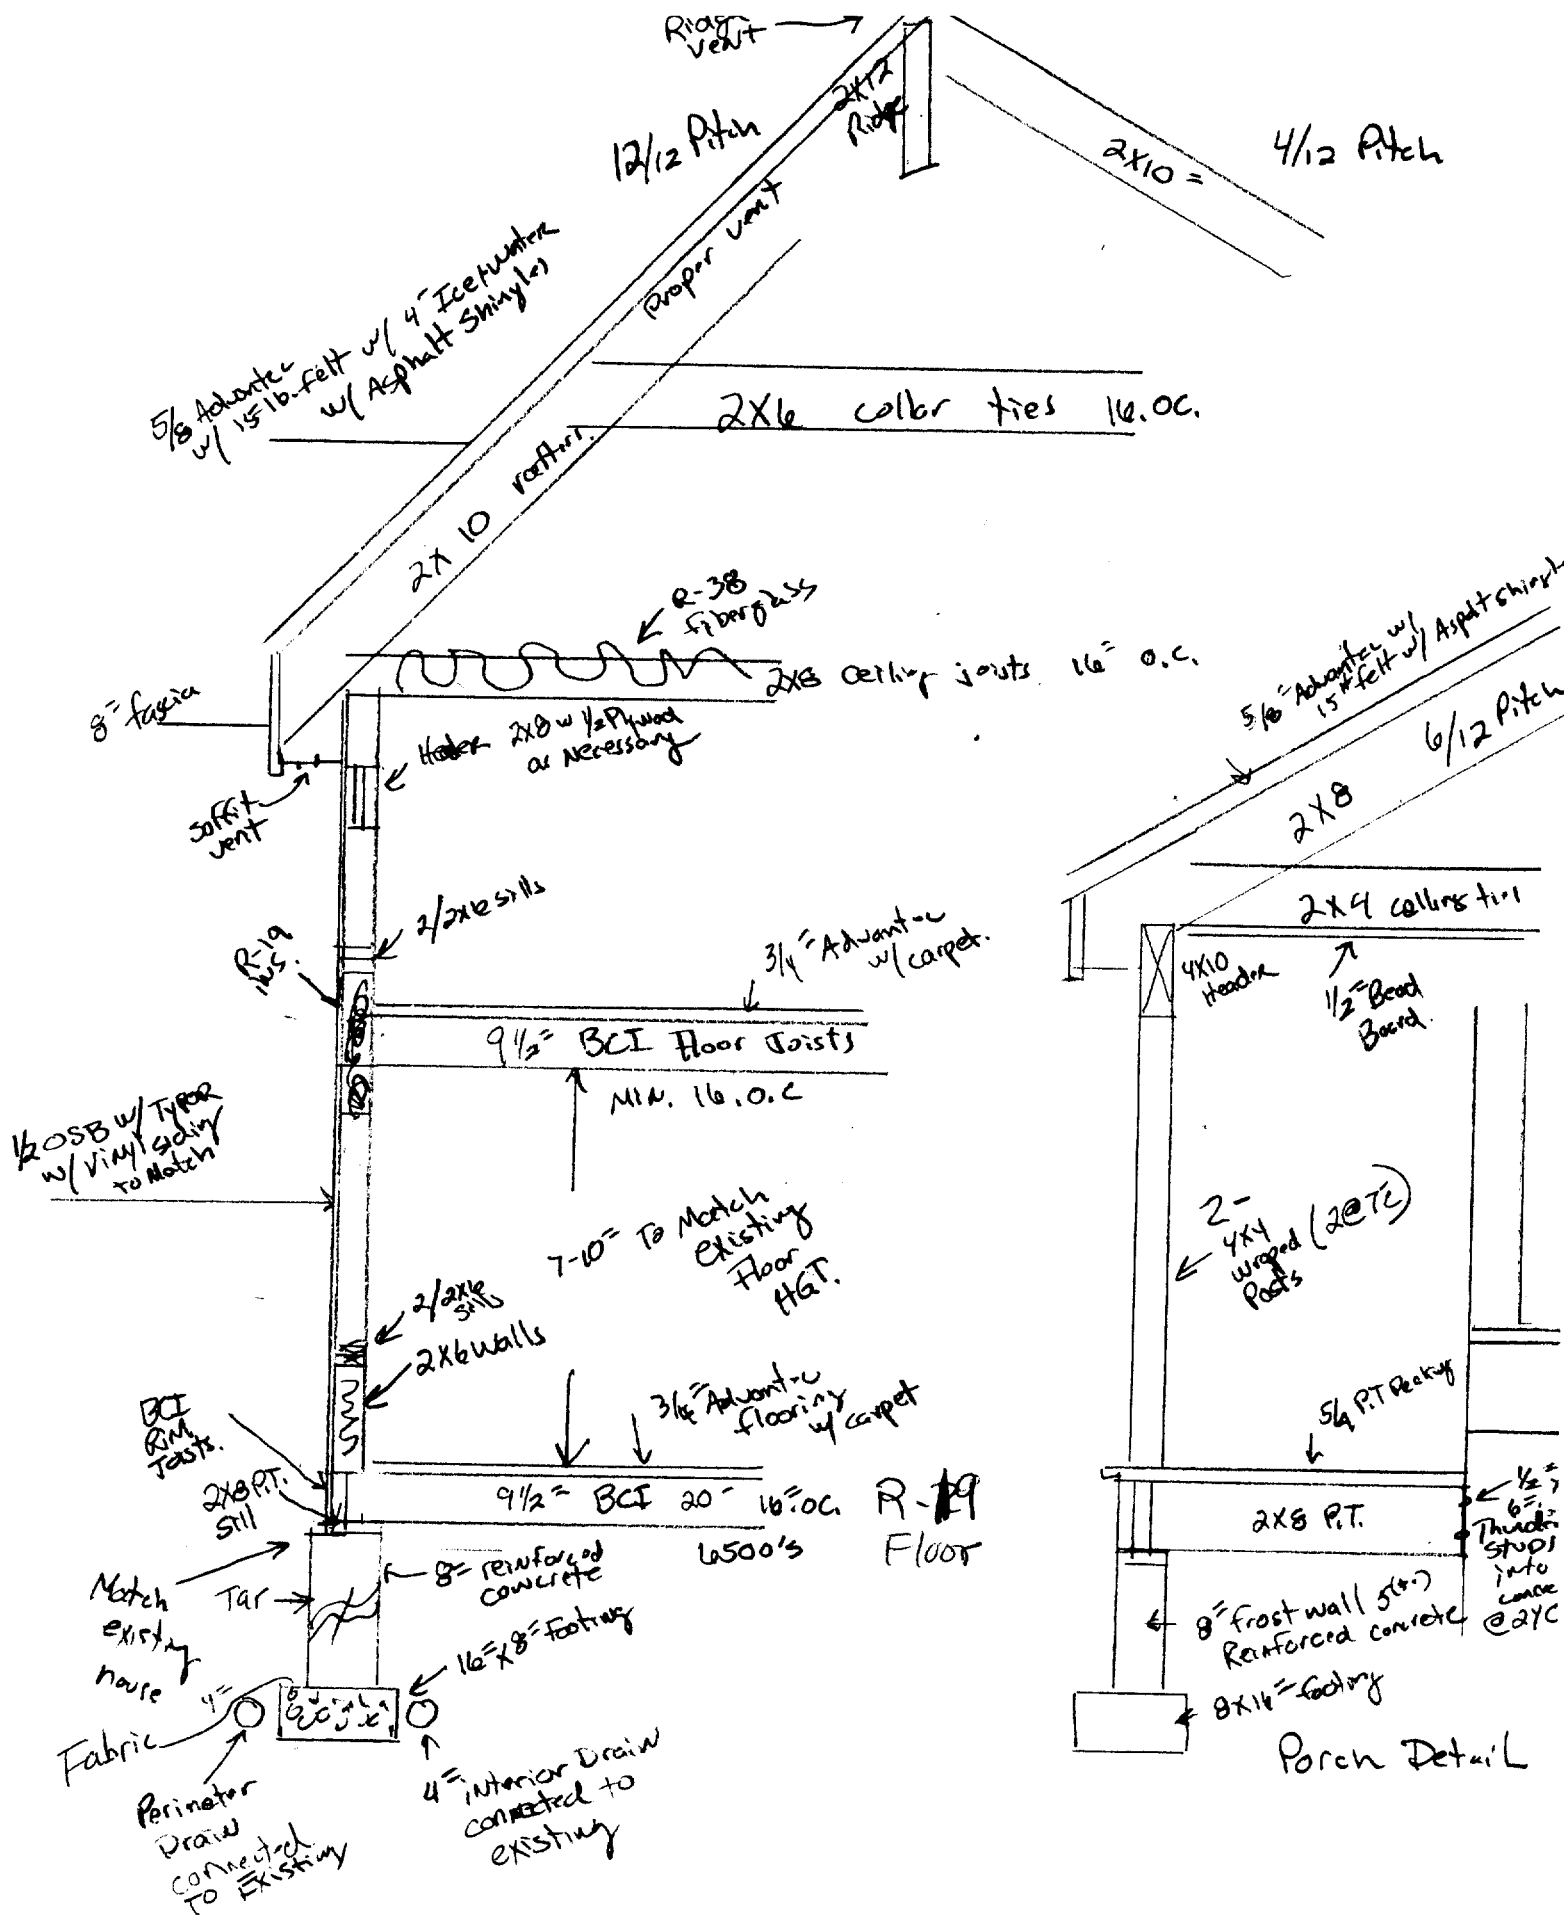 Ridge
vent
2x12
Ridge
12/12 Pitch
4/12 Pitch
2x10 =
Proper vent
5/8 Advantec
w/ 15 lb. felt w/ 4" Ice + water
w/ Asphalt Shingles
2x6 collar ties 16. OC.
2x10 rafters.
R-38
fiberglass
2x8 ceiling joists 16" o.c.
8" fascia
Header 2x8 w 1/2 Plywood
as Necessary
soffit
vent
2/2x6 sills
R-19
INS.
3/4" Advantec
w/ carpet.
9 1/2" BCI Floor Joists
MIN. 16. O.C
1/2 OSB w/ TYPAR
w/ Vinyl siding
to Match
7-10" To Match
existing
Floor
HGT.
2/2x6
sills
2x6 Walls
BCI
RIM
Joists.
2x8 P.T.
Sill
3/4" Advantec
flooring
w/ carpet
9 1/2" BCI 20" 16" OC.
6500's
R-19
Floor
Match
existing
house
Tar
8" reinforced
concrete
16" x 8" footing
4"
Fabric
Perimeter
Drain
connected
TO Existing
4" interior Drain
connected to
existing
5/8" Advantec w/
15# felt w/ Aspalt shingl
6/12 Pitch
2x8
2x4 ceiling ties
4x10
Header
1/2" Bead
Board.
2-
4x4
wraped (2@T'C)
Posts
5/4 P.T Decking
2x8 P.T.
1/2"
6"
STUDS
into
@24C
8" frost wall
Reinforced concrete
8x16" footing
Porch Detail